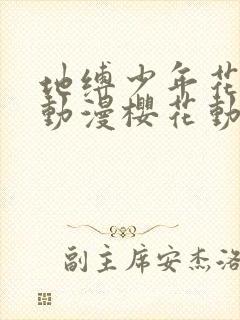 地缚少年花
動漫櫻花動
副主席安杰洛